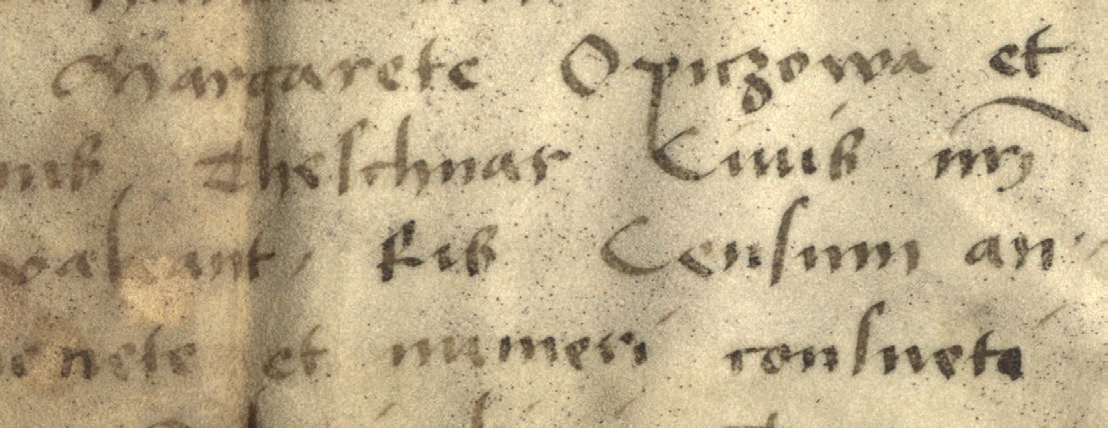 Margarete Opiczowa et
Theschnar Civib nr̃j
valeant, sub Censum an
monete et numeri consueti